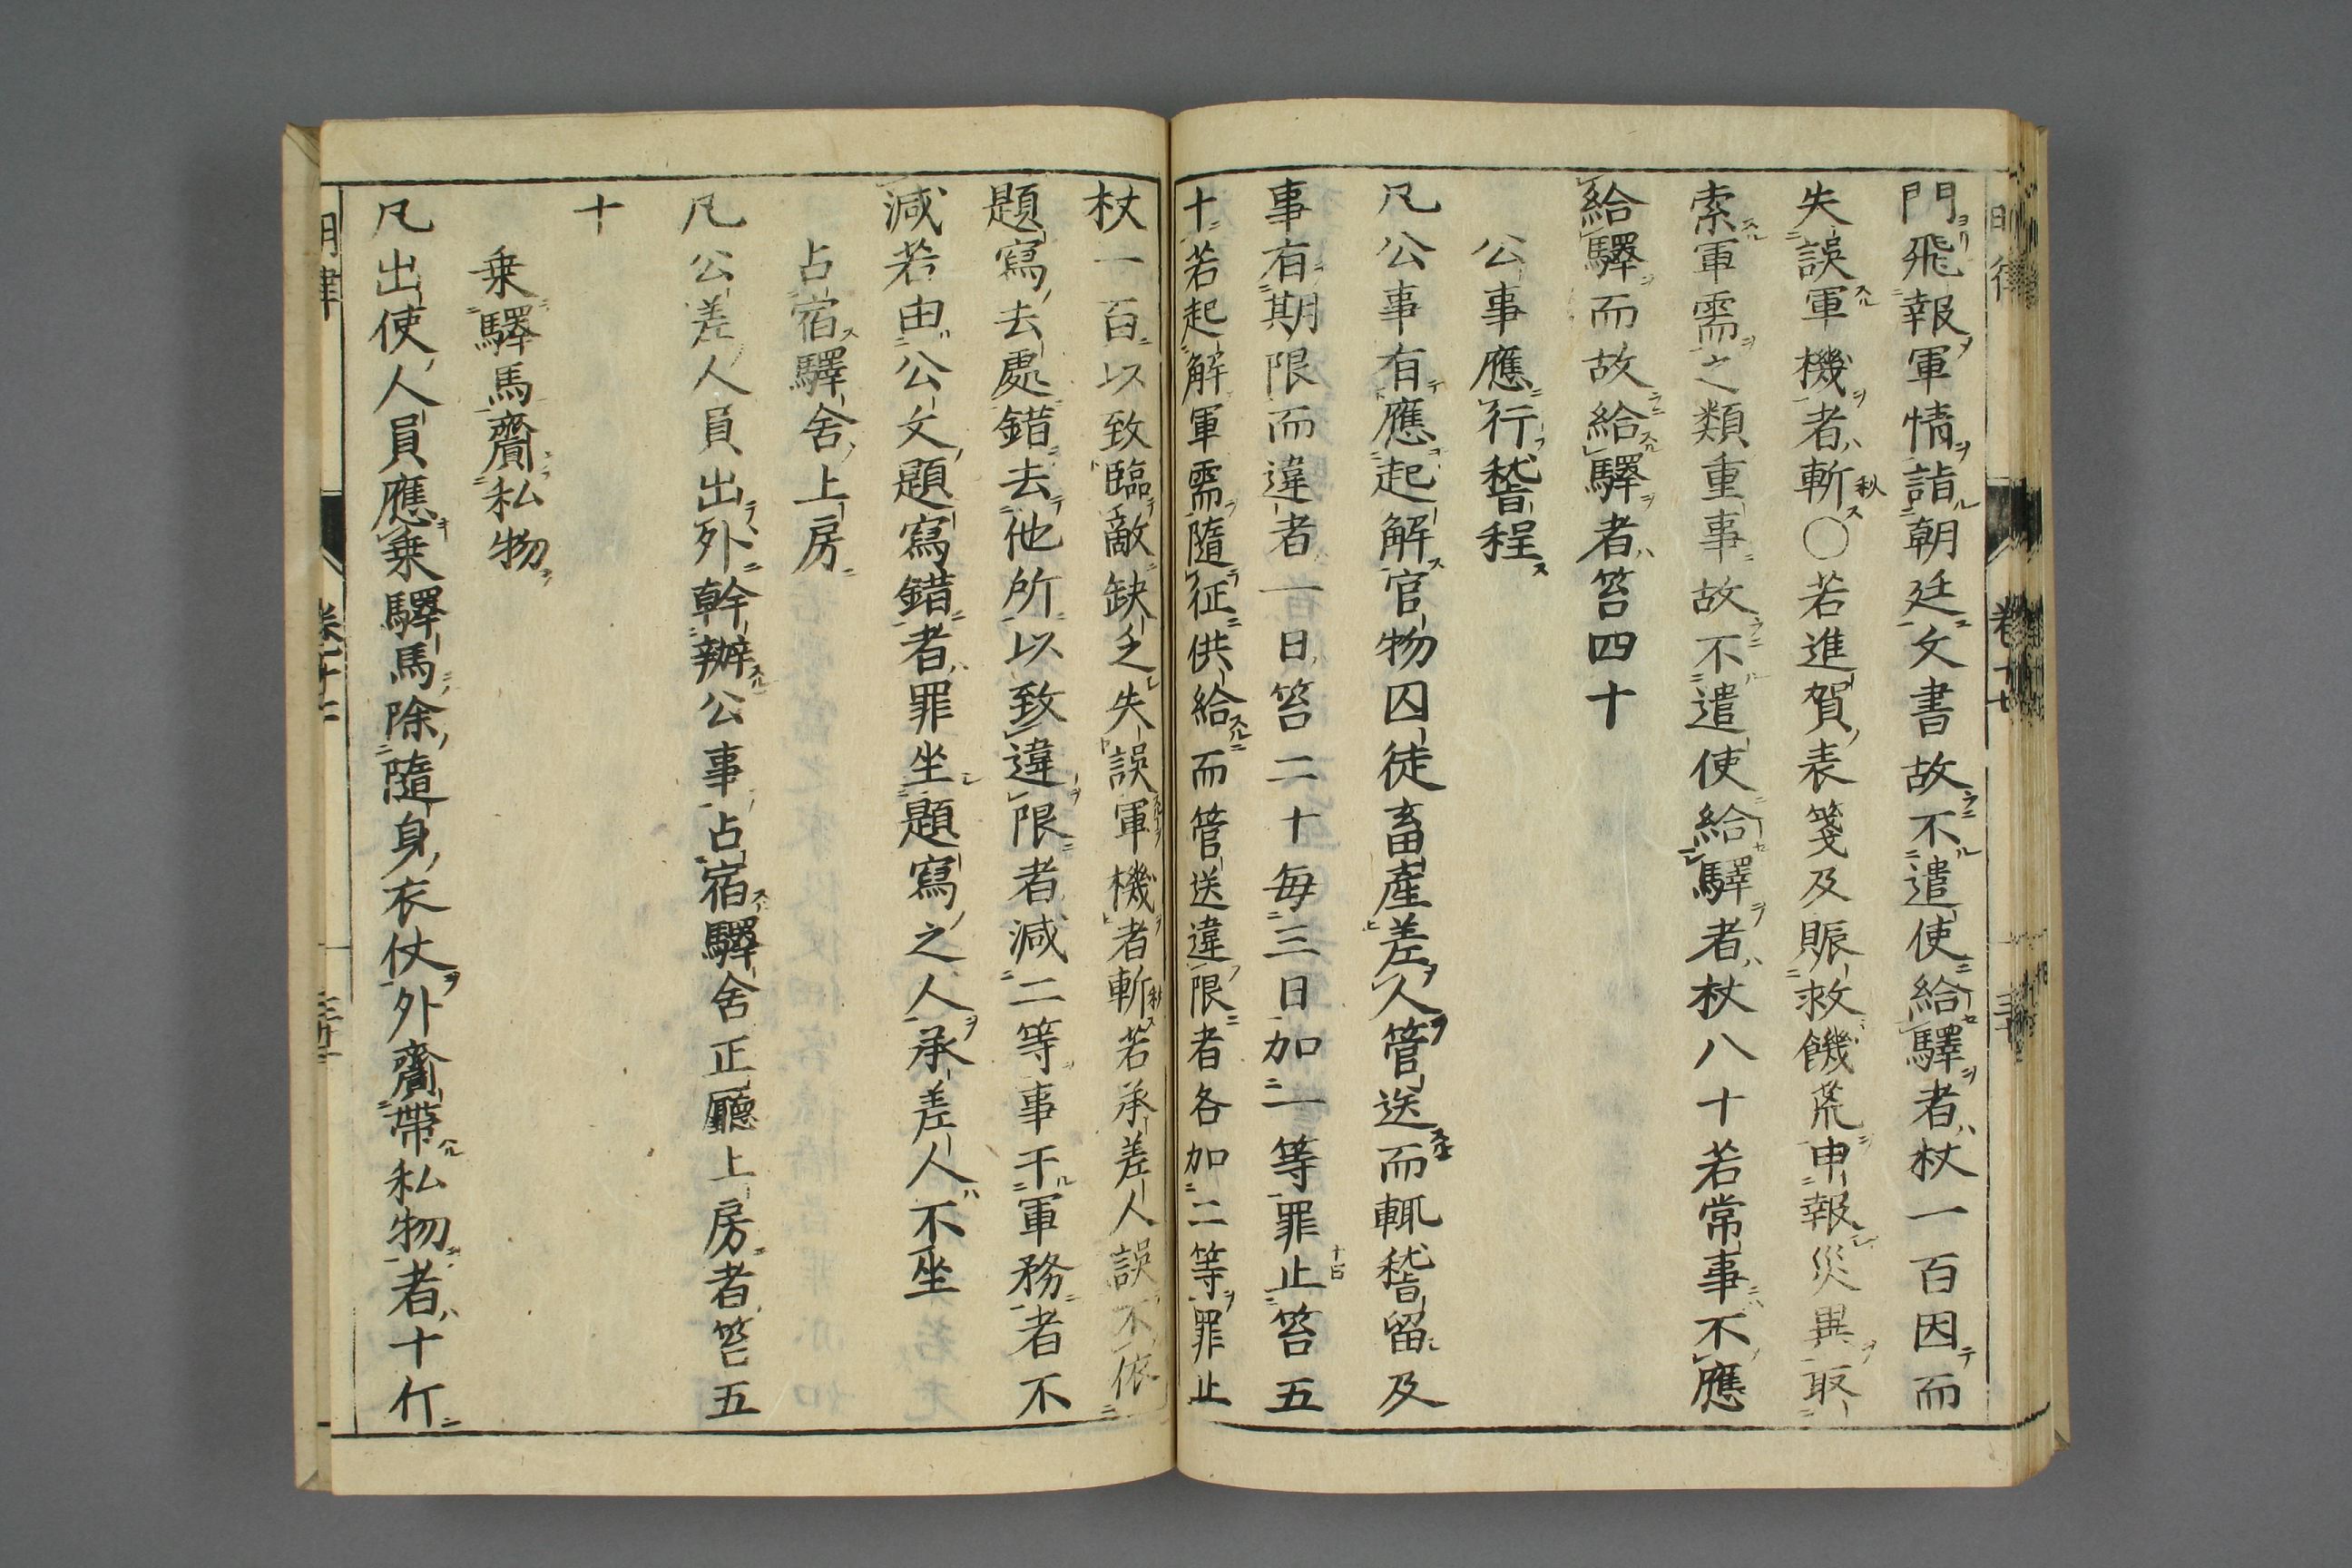 門飛報軍情詣朝廷文書故不遣使給驛者杖一百因而
失誤軍機者斬〇若進賀表箋及賑救饑荒申報災異取
索軍需之類重事故不遣使給驛者杖八十若常事不應
給驛而故給驛者笞四十
公事應行稽程
凡公事有應起解官物囚徒畜產差人管送而輒稽留及
事有期限而違者一日笞二十每三日加一等罪止笞五
十若起解軍需隨征供給而管送違限者各加二等罪止
杖一百以致臨敵缺乏失誤軍機者斬若承差人誤不依
題寫去處錯去他所以致違限者減二等事干軍務者不
減若由公文題寫錯者罪坐題寫之人承差人不坐
占宿驛舍上房
凡公差人員出外幹辦公事占宿驛舍正廳上房者笞五
十
乗驛馬齎私物
凡出使人員應乗驛馬除隨身衣仗外齎帶私物者十斤